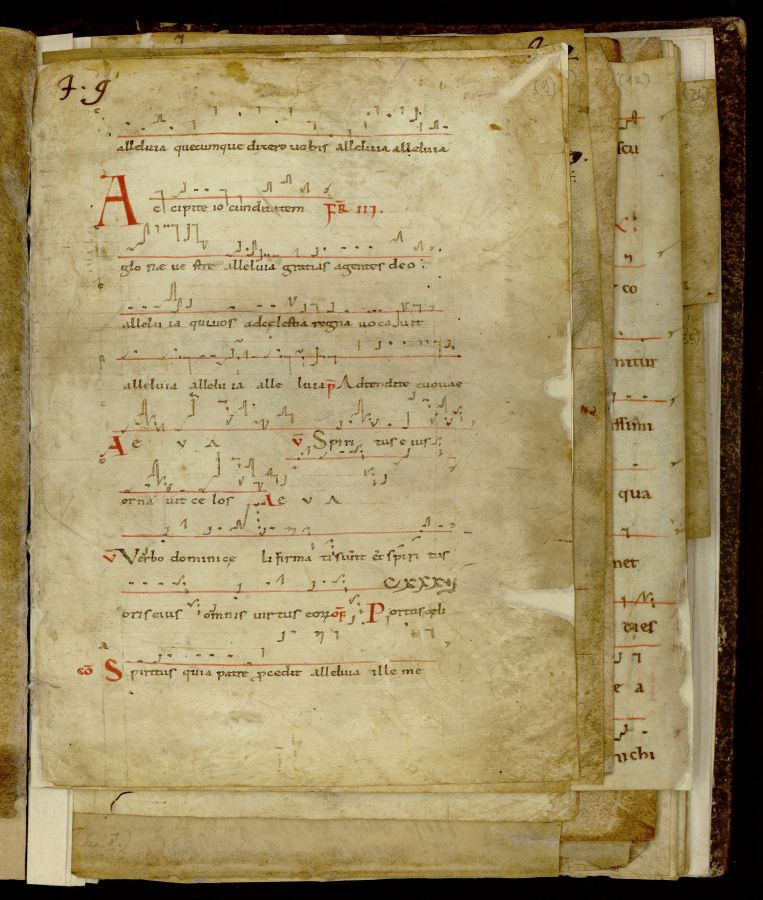 7. 9
(9)
(12)
alleluia quecumque dixero uobis alleluia alleluia
A ccipite io cunditatem FR III.
glo riae ue strae alleluia gratias agentes deo
allelu ia qui uos adcelestia regna uocauit
alleluia allelu ia alle luia p Adtendite euouae
A E V A V Spiri tus e ius
orna uit ce los A E V A
V Verbo dominice li firma ti sunt et spiri tus
oris eius omnis uirtus eor of Portas celi
co Spiritus quia patre pcedit alleluia ille me
co
nitur
issimi
qua
net
e a
michi